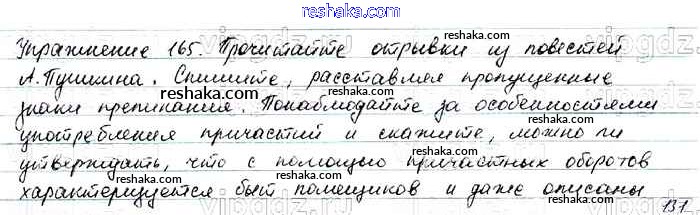 reshaka.com
Упражнение 165. Прочитайте отрывки из повестей
А. Пушкина. Спишите, расставляя пропущенные
знаки препинания. Понаблюдайте за особенностями
употребления причастий и скажите, можно ли
утверждать, что с помощью причастных оборотов
характеризуется быт помещиков и даже описаны
131